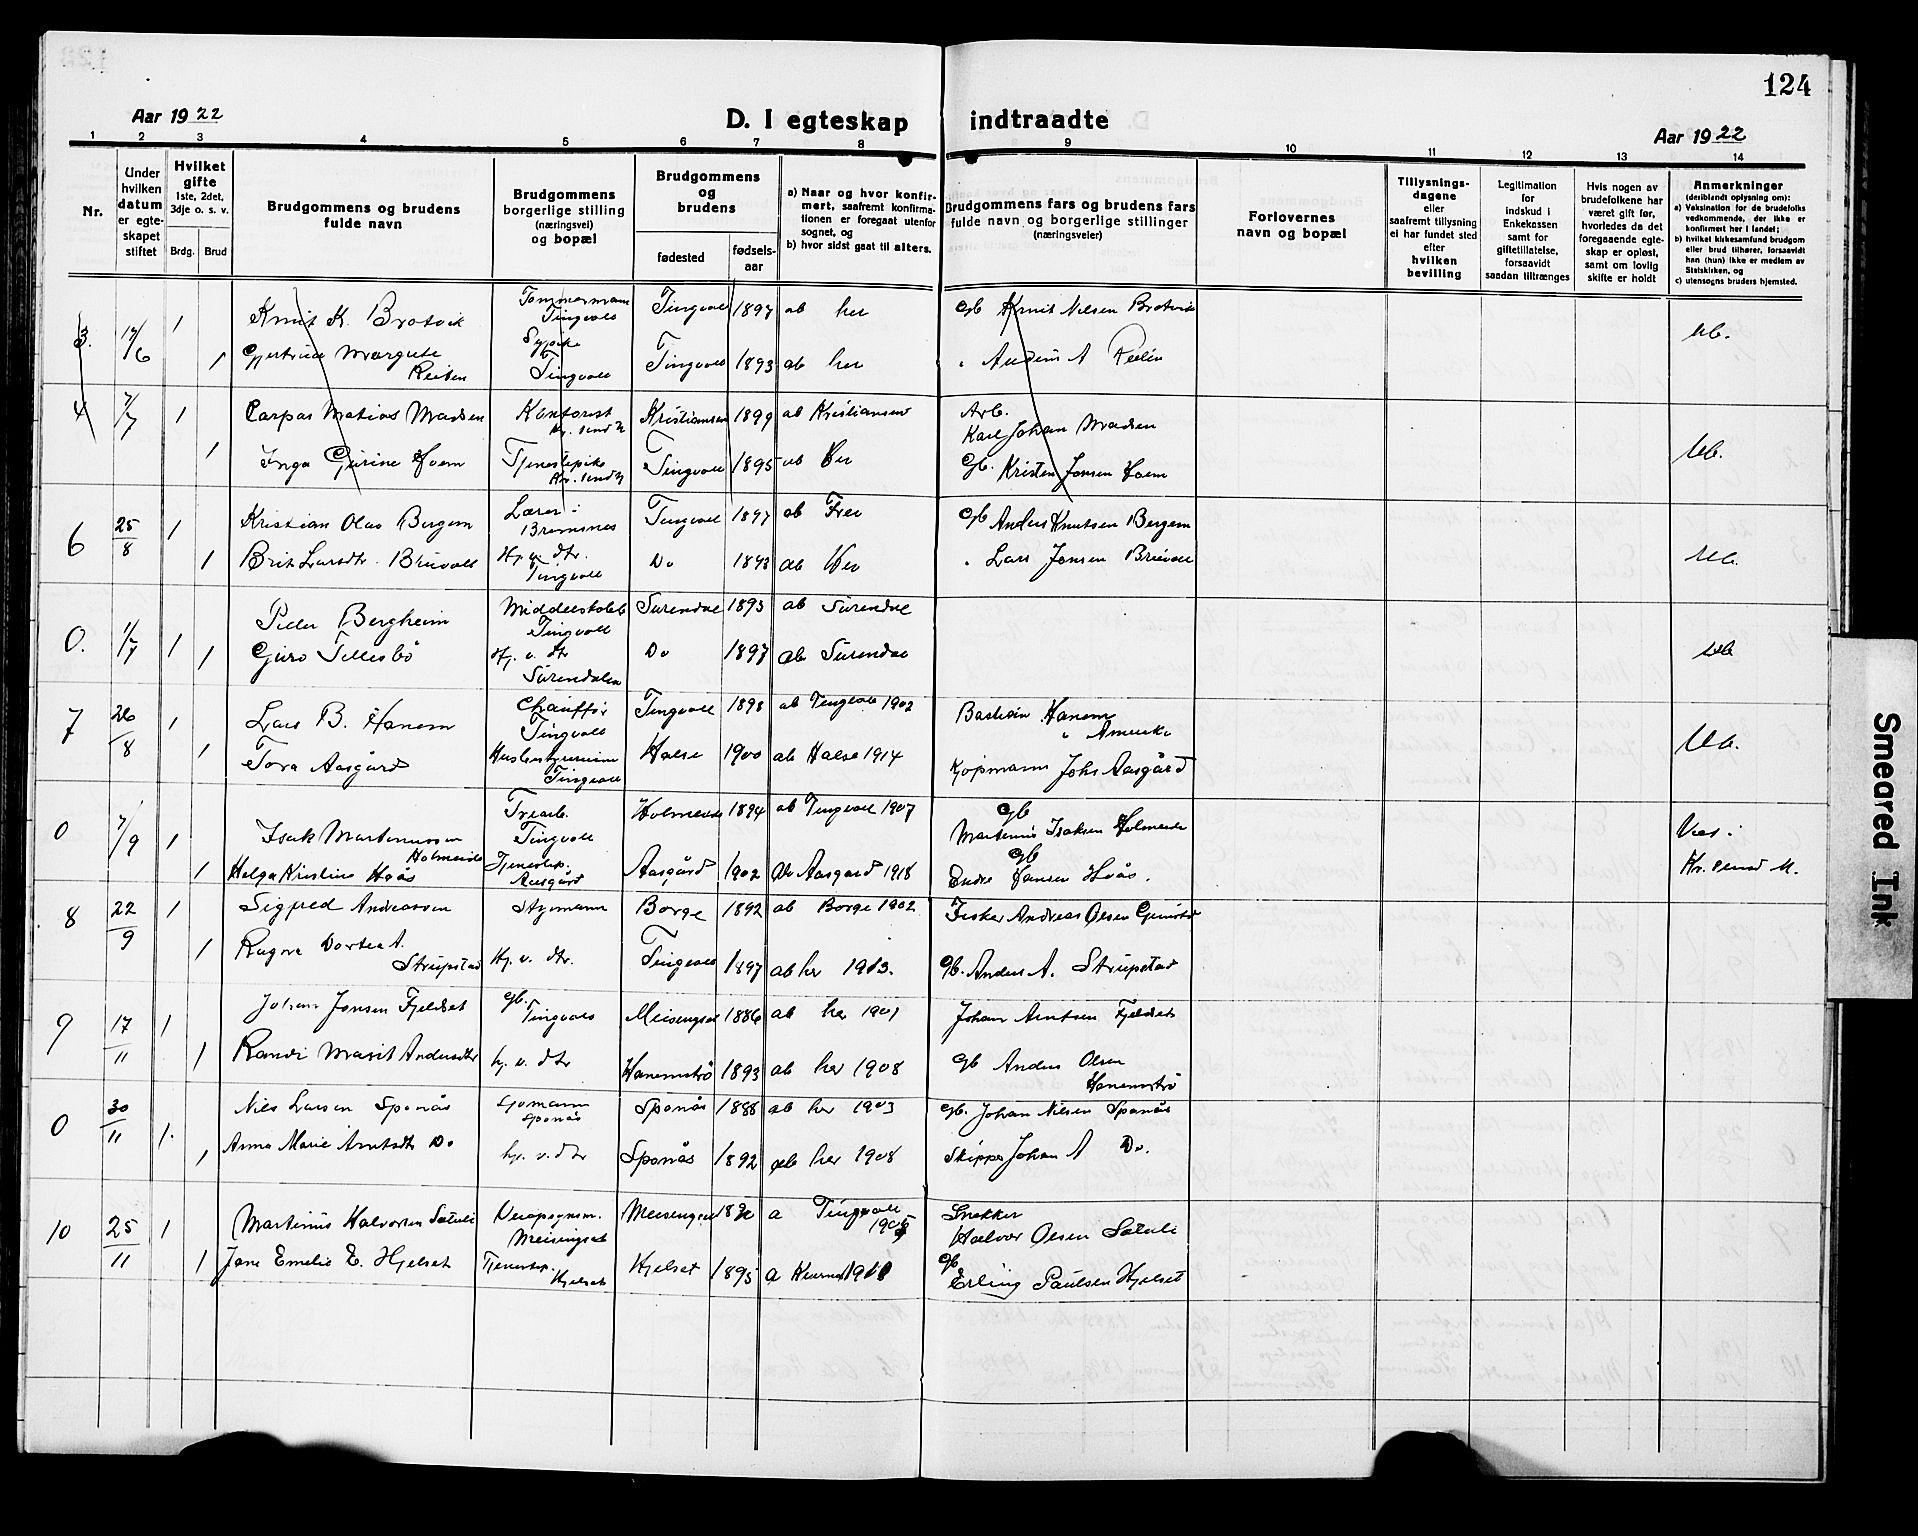 124
Aar 1922
D. I egteskap indtraadte
Aar 1922
1 2 3 4 5 6 7 8 9 10 11 12 13 14
Nr.
Under hvilken datum er egteskapet stiftet
Hvilket gifte
1ste, 2det, 3dje o. s. v.
Brdg. Brud
Brudgommens og brudens fulde navn
Brudgommens borgerlige stilling (næringsvei) og bopæl
Brudgommens og brudens
fødested
fødselsaar
a) Naar og hvor konfirmert, saafremt konfirmationen er foregaat utenfor sognet, og
b) hvor sidst gaat til alters.
Brudgommens fars og brudens fars fulde navn og borgerlige stillinger (næringsveier)
Forlovernes navn og bopæl
Tillysningsdagene eller saafremt tillysning ei har fundet sted efter hvilken bevilling
Legitimation for indskud i Enkekassen samt for giftetillatelse, forsaavidt saadan tiltrænges
Hvis nogen av brudefolkene har været gift før, hvorledes da det foregaaende egteskap er opløst, samt om lovlig skifte er holdt
Anmerkninger
(deriblandt oplysning om):
a) Vaksination for de brudefolks vedkommende, der ikke er konfirmert her i landet;
b) hvilket kirkesamfund brudgom eller brud tilhører, forsaavidt han (hun) ikke er medlem av Statskirken, og
c) utensogns bruders hjemsted.
3. 17/6 1 Knut K. Brotvik Tømmermann Tingvoll Tingvoll 1897 ab her Gb Knut Nilsen Brotvik
1 Gjertrud Margrete Reiten Sypike Tingvoll Tingvoll 1893 ab her
4 7/7 1 Caspar Matias Madsen Kontorist Kr. sund N Kristiansund 1899 ab Kristiansund Arb. Karl Johan Madsen
1 Inga Gurine Hoem Tjenestepike Kr. sund N Tingvoll 1895 ab Her Gb. Kristen Jonsen Hoem
6 25/8 1 Kristian Olav Bergem Lærer i Bremsnes Tingvoll 1897 ab Frei Gb Anders Knutsen Bergem
1 Brit Larsdtr. Bruvoll Hj. v. dtr. Tingvoll Do 1893 ab Her " Lars Jonsen Bruvoll
0. 1/7 1 Peder Bergheim Tingvoll Surendal 1893 ab Surendal
1 Guro Tellesbø Hj. v. dtr Surendalen Do 1897 ab Surendal
7 26/8 1 Lars B. Hanem Chauffør Tingvoll Tingvoll 1898 ab Tingvoll 1902 Bastian Hanem i Amerika
1 Tora Aasgård Husbestyrerinne Tingvoll Halse 1900 ab Halse 1914 Kjøpmann Johs Aasgård
0 7/9 1 Isak Martinussen Holmeide Trearb. Tingvoll Holmeide 1894 ab Tingvoll 1907 Gb Martinus Isaksen Holmeide
1 Helga Kristine Haås Tjenestep. Aasgård Aasgård 1902 ab Aasgard 1918 Gb Endre Hansen Hoås.
Kr. sund N.
8 22/9 1 Sigfred Andreassen Styrmann Borge 1892 ab Borge 1902 Fisker Andreas Olsen
1 Ragna Dortea A. Strupstad Hj. v. dtr. Tingvoll 1897 ab her 1913. Gb. Anders A. Strupstad
9 17/11 1 Johan Jonsen Fjeldset Gb. Tingvoll Meisingset 1886 ab her 1901 Johan Arntsen Fjeldset
1 Randi Marit Andersdtr hj. v. dtr Hanemstrø 1893 ab her 1908 Gb Anders Olsen Hanemstrø
0 30/11 1. Nils Larsen Sponås Sjømann Sponås Sponås 1888 ab her 1903 Gb. Johan Nilsen Sponås
1 Anna Marie Arntsdtr Do hj. v. dtr Sponås 1892 ab her 1908 Skipper Johan A Do.
10 25/11 1 Martinus Halvorsen Sætuli Veiopsynsm. Meisingset Meisingset a Tingvoll Snekker Halvor Olsen Sætuli
1 Jane Emelie E. Hjelset Tjenestep. Hjelset Hjelset 1895 a Gb Erling Paulsen Hjelset
Smeared Ink